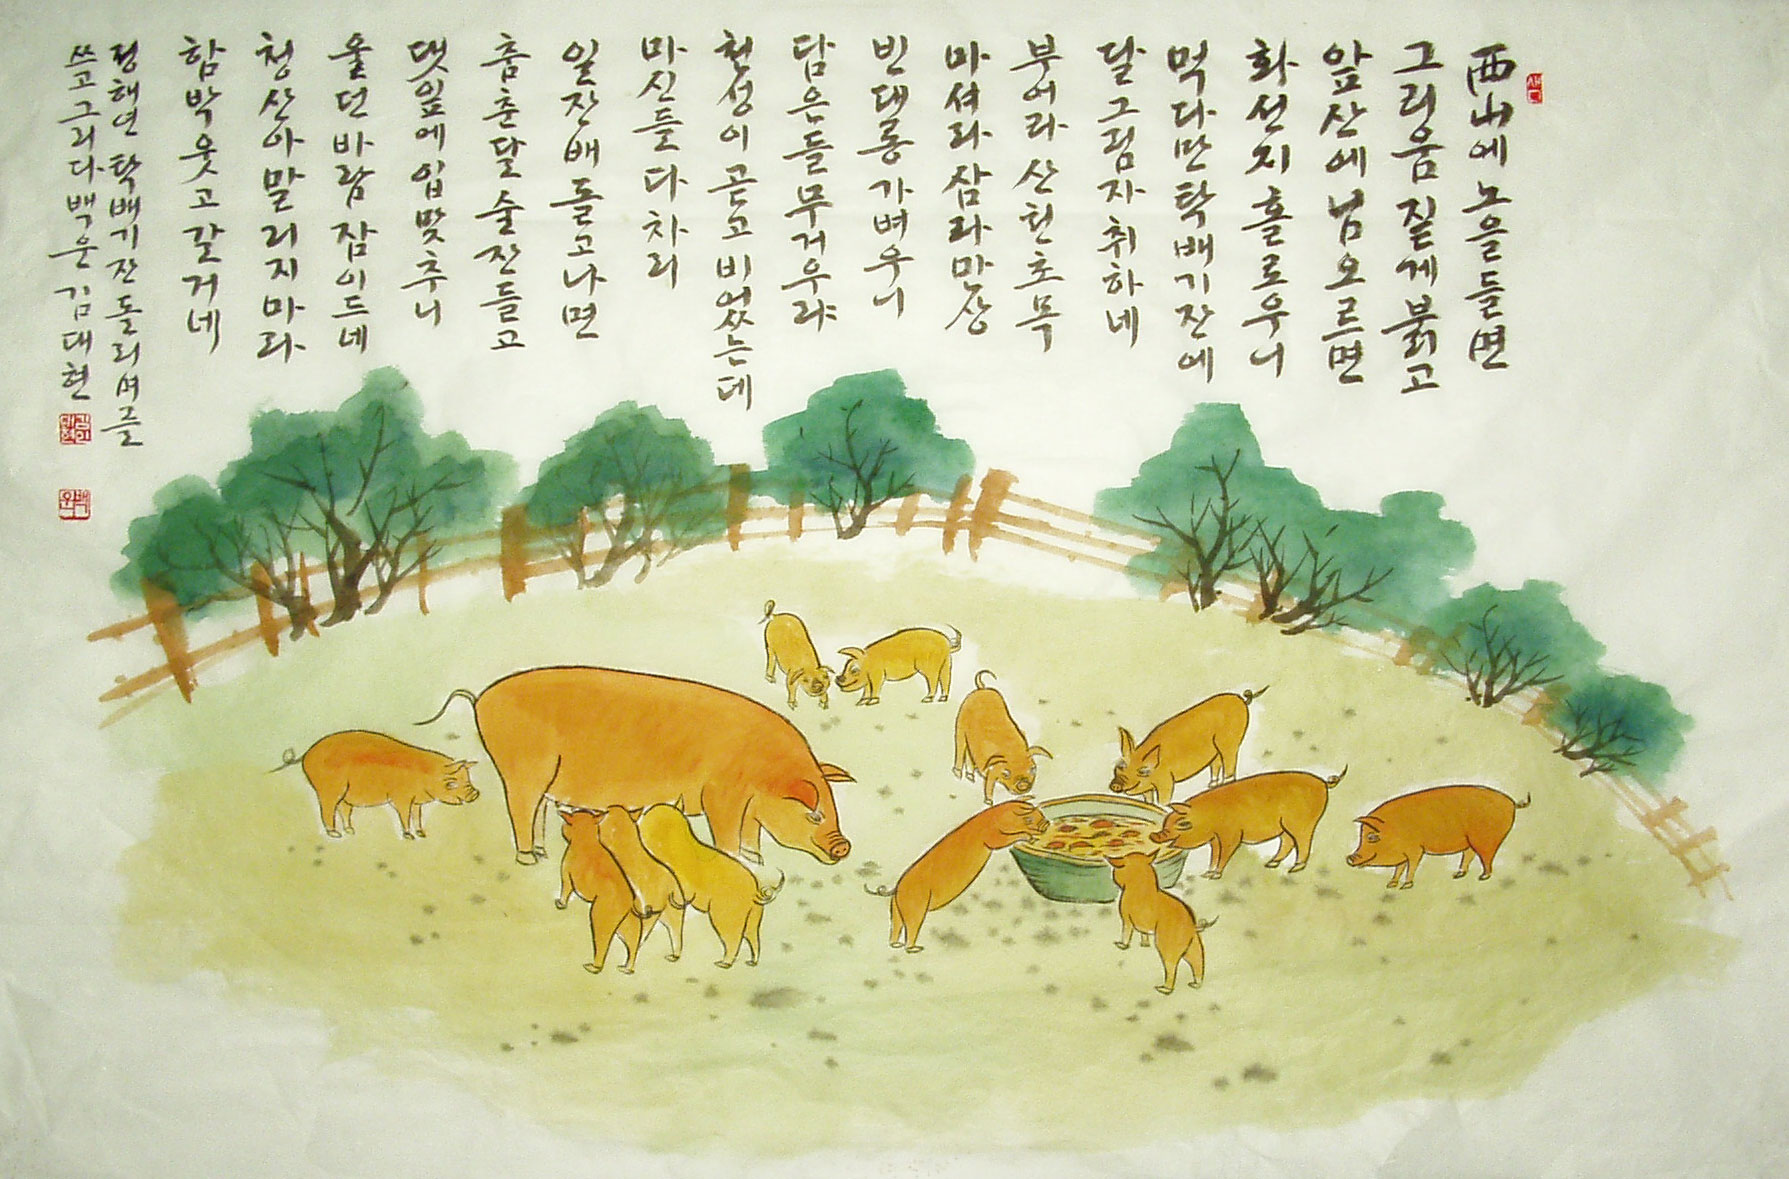 西山에 노을 들면
그리움 짙게 붉고
앞산에 님 오르면
화선지 흘로우니
먹다만 탁배기잔에
달그림자 취하네
부어라 산천초목
마셔라 삼라만상
빈대롱 가벼우니
담은들 무거우랴
천성이 곧고 비었는데
마신들 다 차리
일잔배 돌고나면
춤춘달 술잔들고
댓잎에 입맞추니
울던바람 잠이드네
청산아 말리지마라
함박웃고 갈거네
정해연 탁배기잔 돌리며 글
쓰고 그리다 백운 김대현